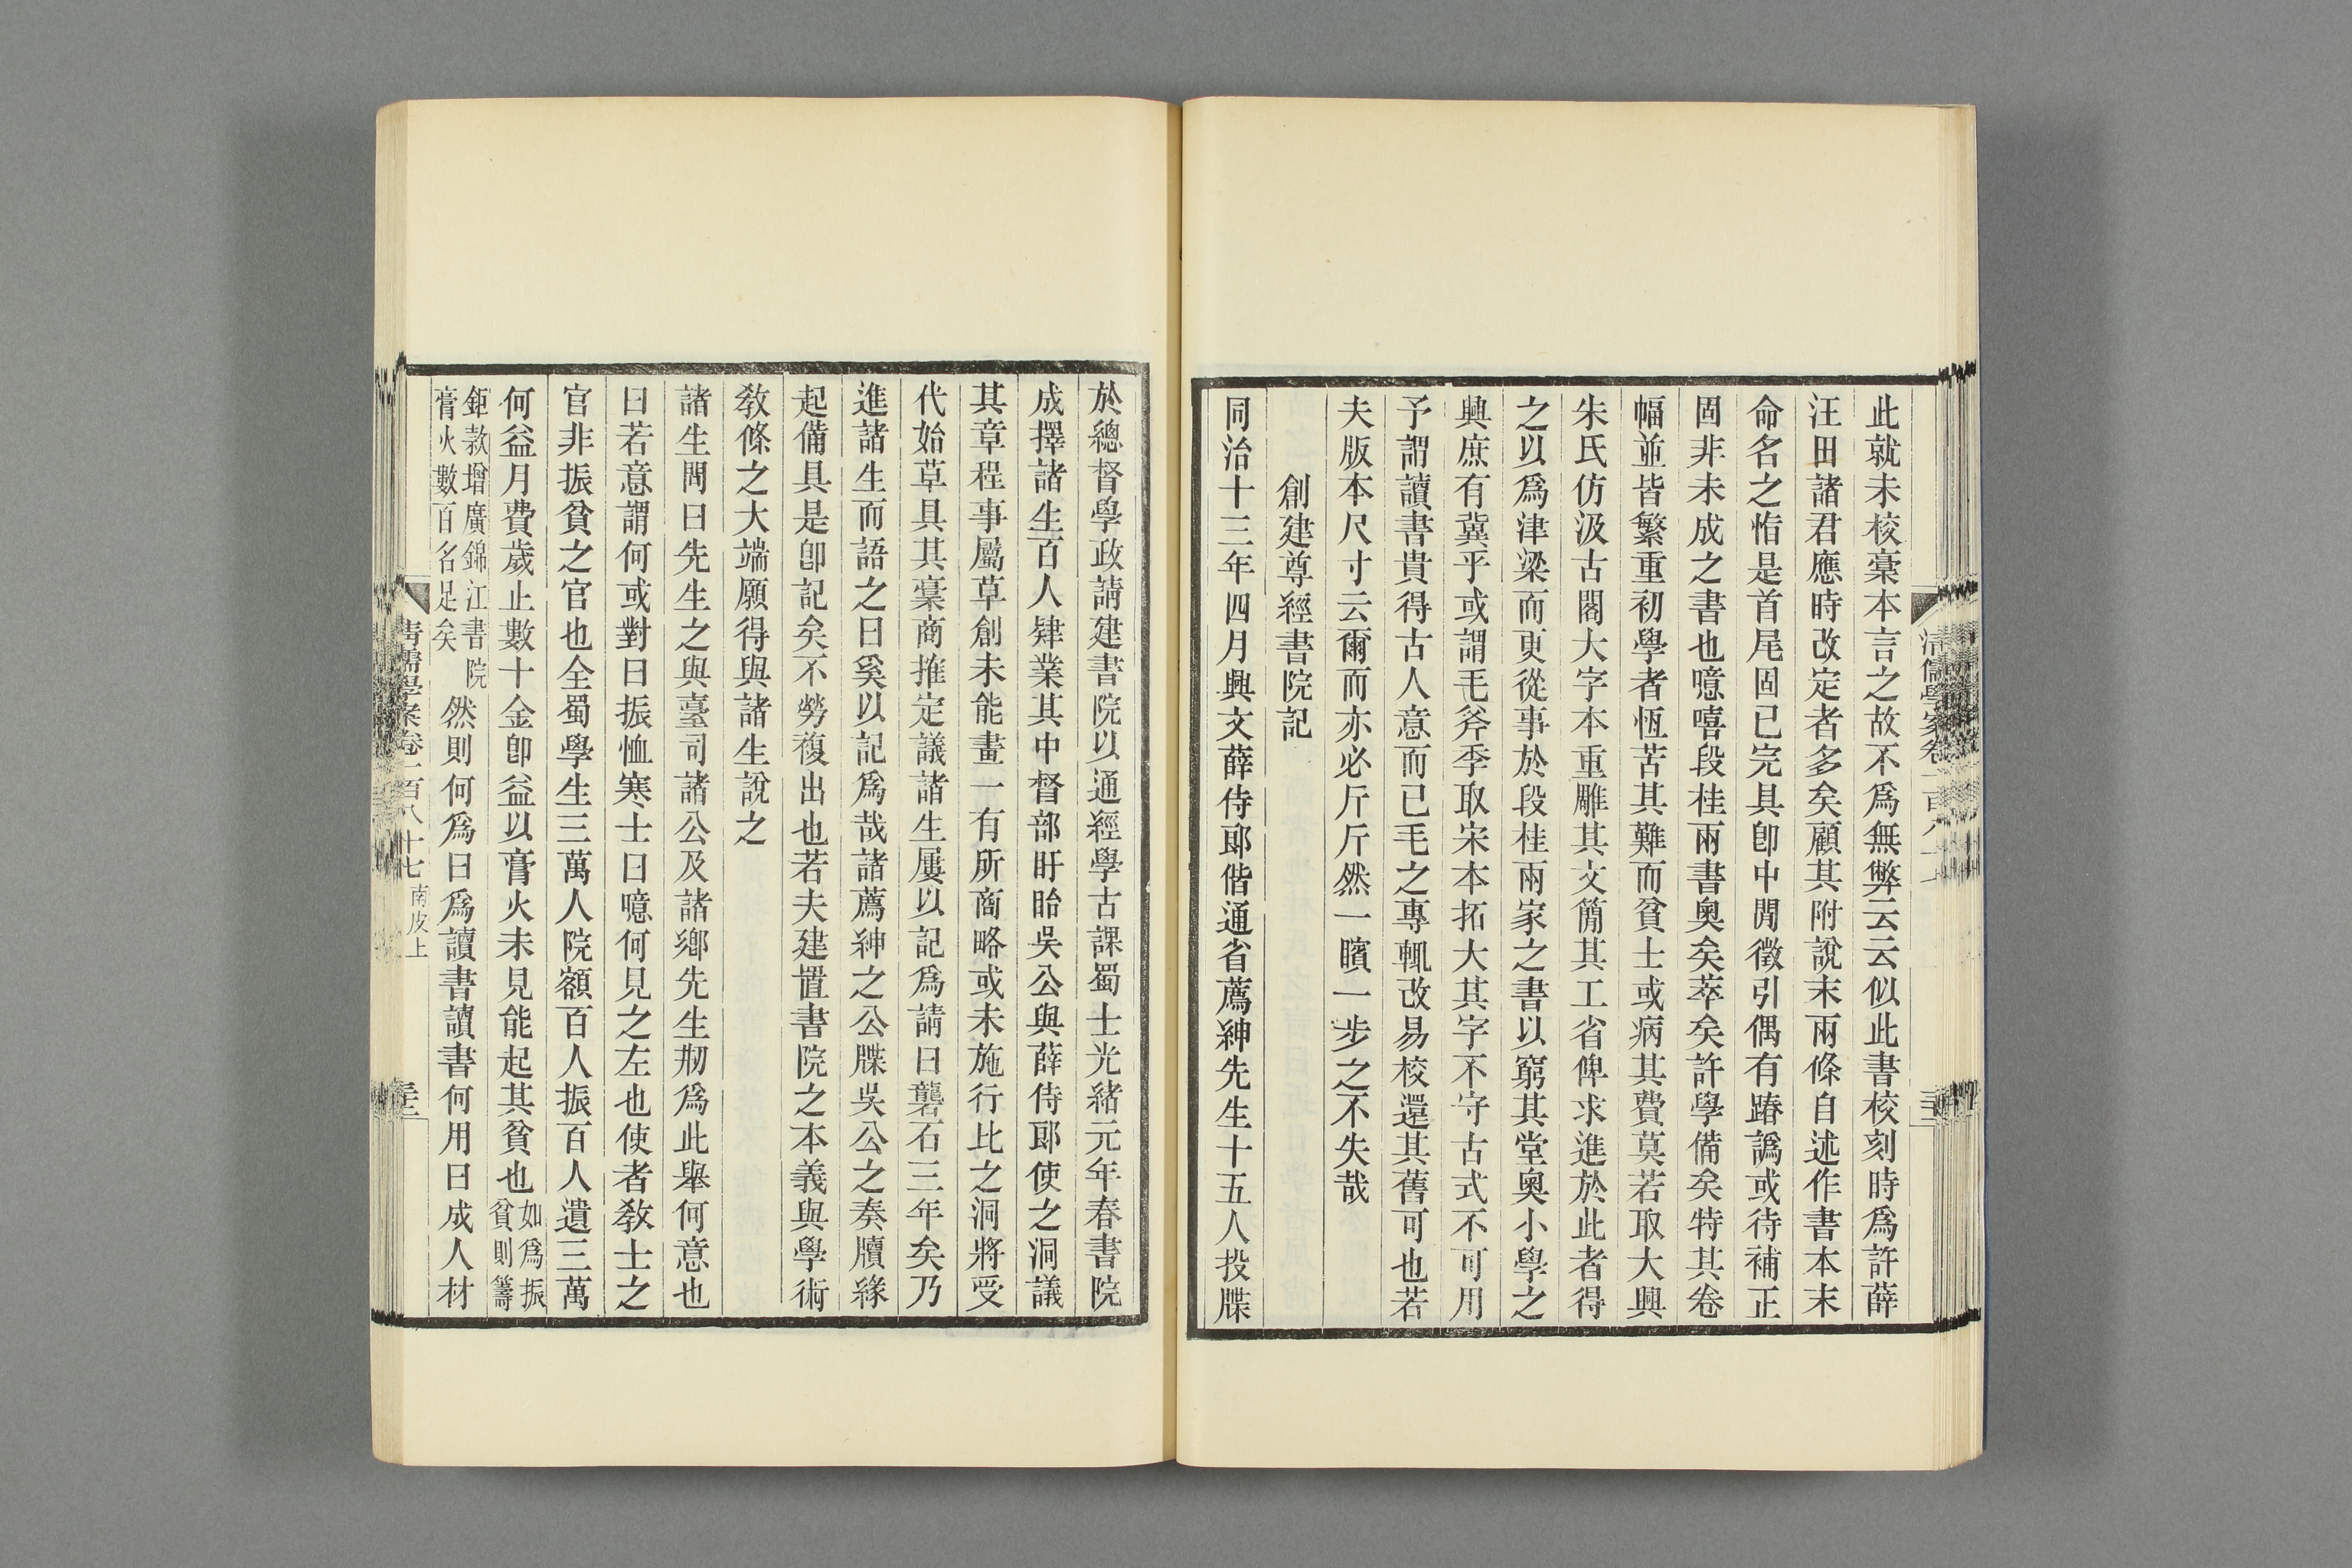 此就未校稾本言之故不爲無弊云云似此書校刻時爲許薛
汪田諸君應時改定者多矣顧其附說末兩條自述作書本末
命名之恉是首尾固已完具卽中閒徵引偶有踳譌或待補正
固非未成之書也噫嘻段桂兩書奧矣萃矣許學備矣特其卷
幅並皆繁重初學者恆苦其難而貧士或病其費莫若取大興
朱氏仿汲古閣大字本重雕其文簡其工省俾求進於此者得
之以爲津梁而更從事於段桂兩家之書以窮其堂奧小學之
興庶有冀乎或謂毛斧季取宋本拓大其字不守古式不可用
予謂讀書貴得古人意而已毛之專輒改易校還其舊可也若
夫版本尺寸云爾而亦必斤斤然一矉一步之不失哉
創建尊經書院記
同治十三年四月興文薛侍郞偕通省薦紳先生十五人投牒
於總督學政請建書院以通經學古課蜀士光緒元年春書院
成擇諸生百人肄業其中督部盱眙吳公與薛侍郞使之洞議
其章程事屬草創未能畫一有所商略或未施行比之洞將受
代始草具其稾商搉定議諸生屢以記爲請曰礱石三年矣乃
進諸生而語之曰奚以記爲哉諸薦紳之公牒吳公之奏牘緣
起備具是卽記矣不勞複出也若夫建置書院之本義與學術
敎條之大端願得與諸生說之
諸生問曰先生之與臺司諸公及諸鄉先生剏爲此舉何意也
曰若意謂何或對曰振恤寒士曰噫何見之左也使者敎士之
官非振貧之官也全蜀學生三萬人院額百人振百人遺三萬
何益月費歲止數十金卽益以膏火未見能起其貧也如爲振
貧則籌
鉅款增廣錦江書院
膏火數百名足矣
然則何爲曰爲讀書讀書何用曰成人材
清儒學案卷一百八十七 南皮上